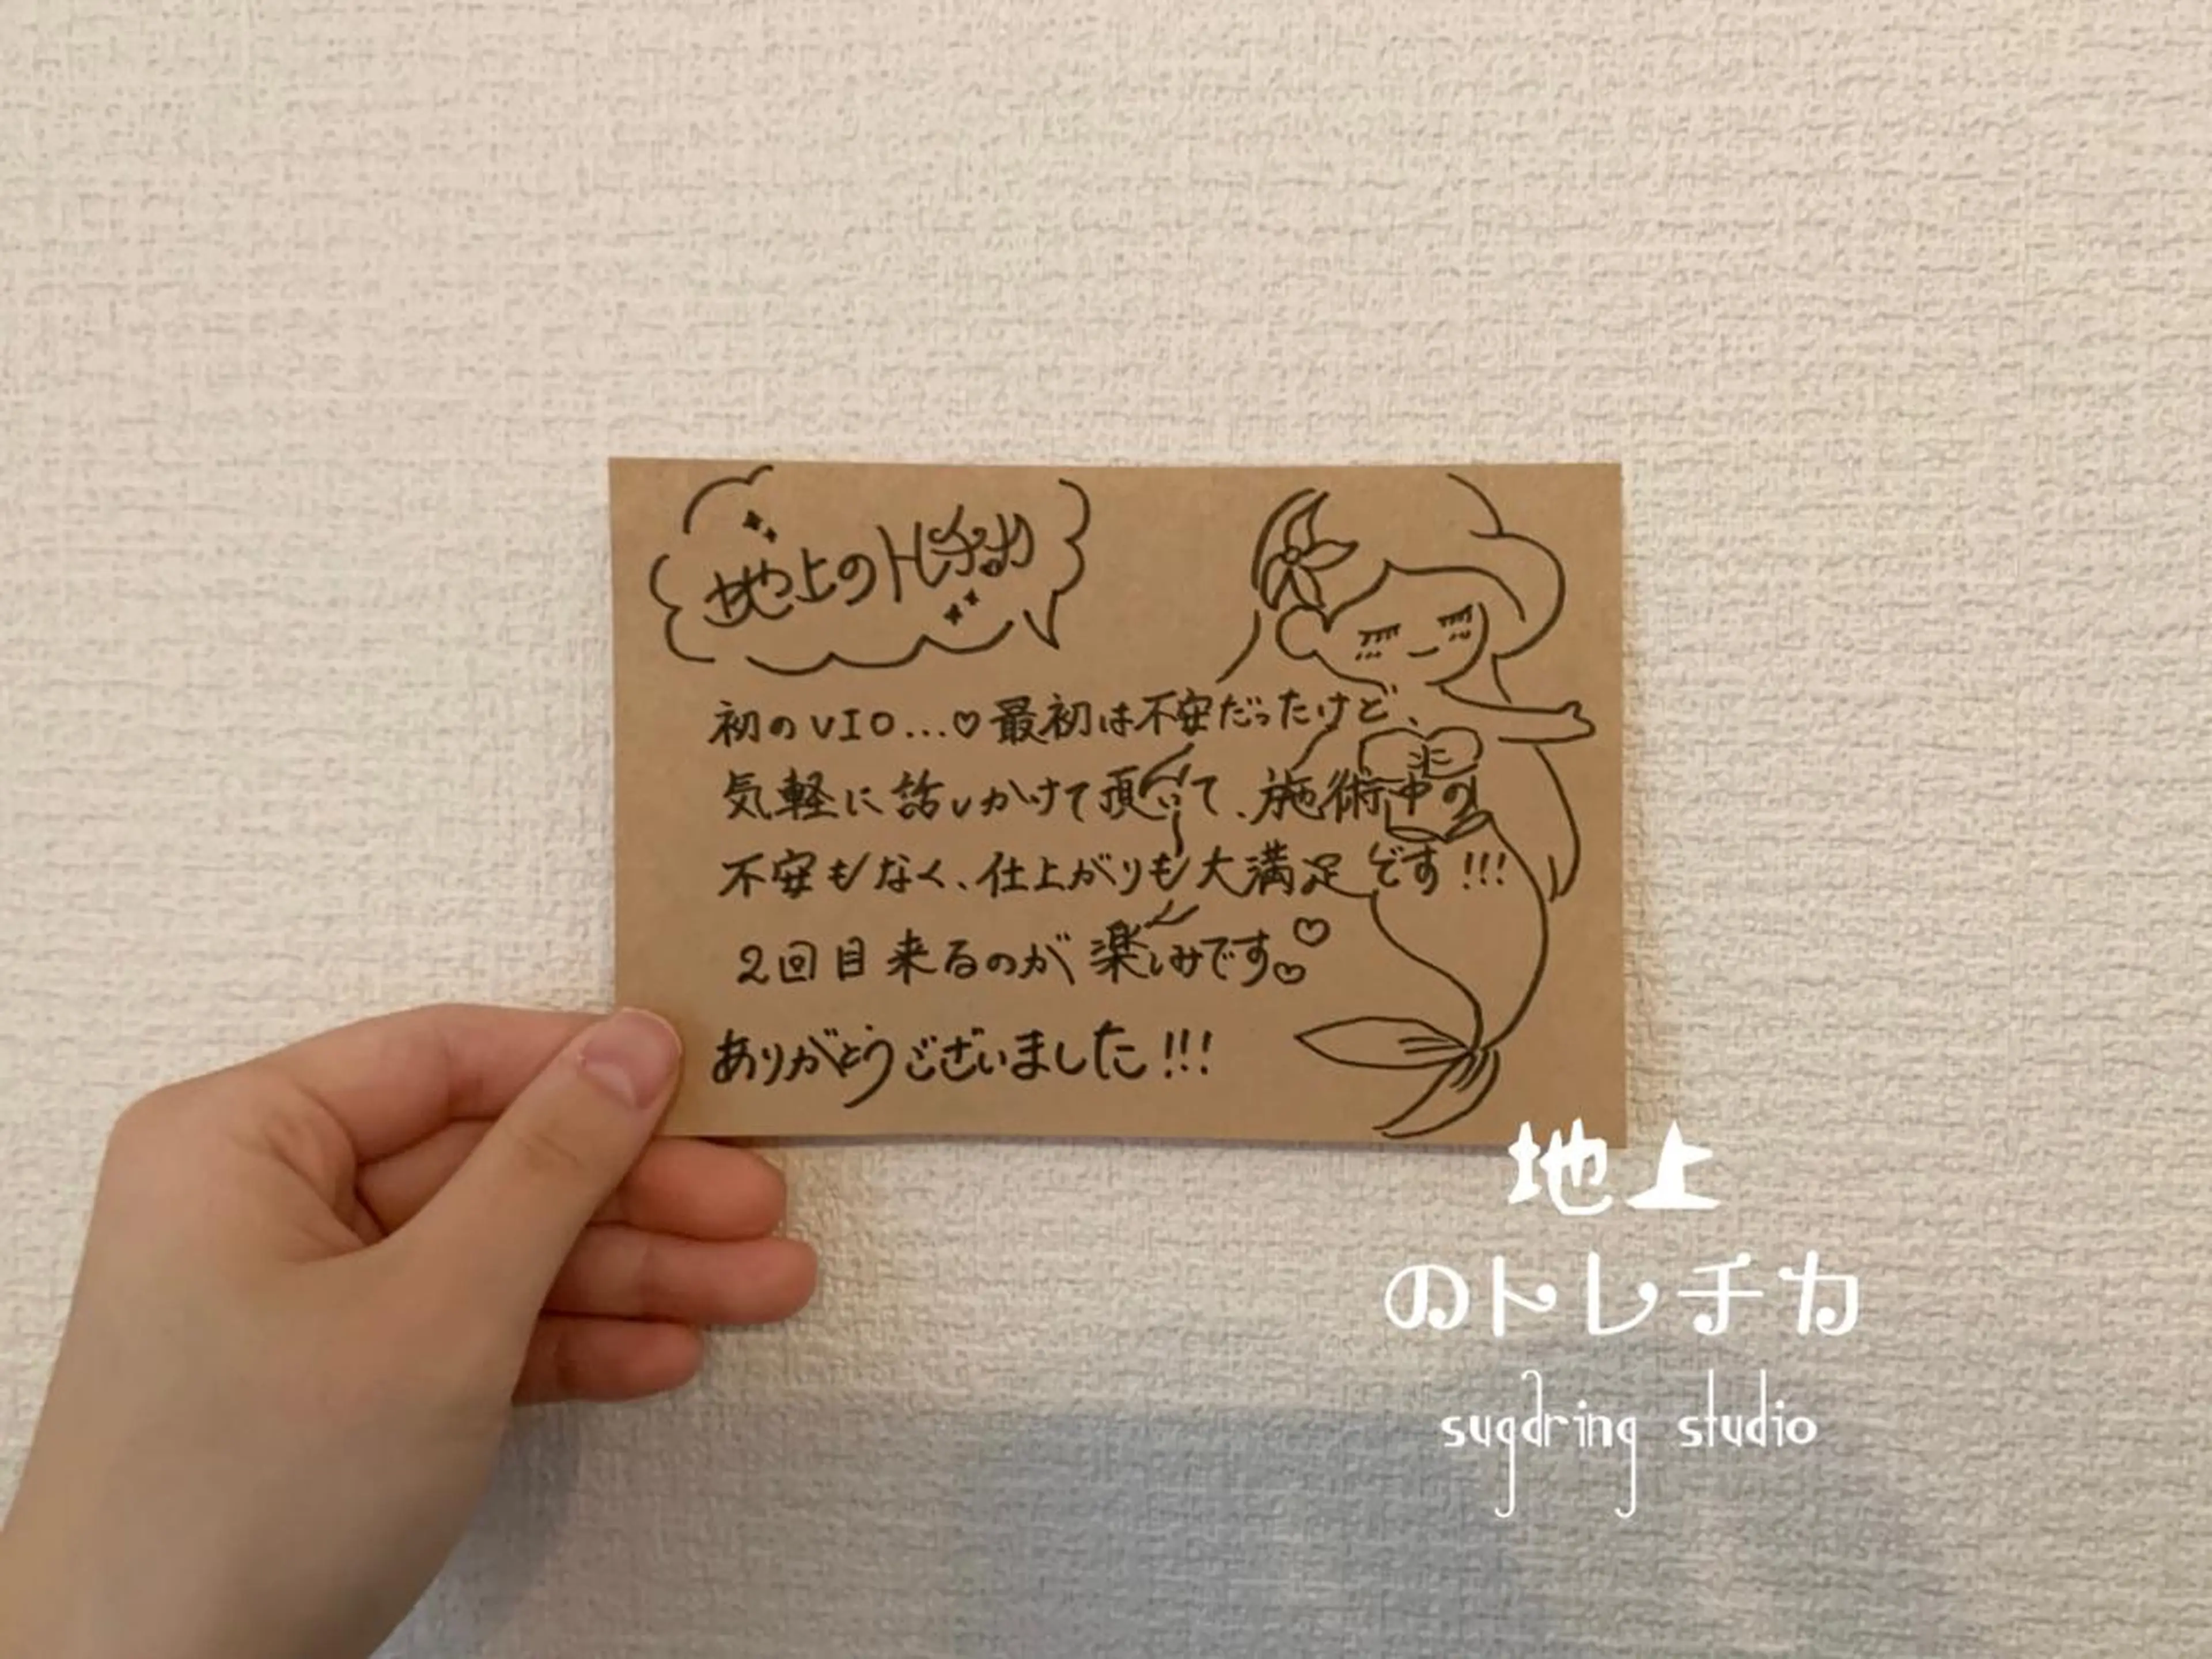 地上のトレチカ
初のVIO...♡最初は不安だったけど、
気軽に話しかけて頂いて、施術中の
不安もなく、仕上がりも大満足です!!!
2回目来るのが楽しみです♡♡
ありがとうございました!!!
地上
のトレチカ
sugaring studio